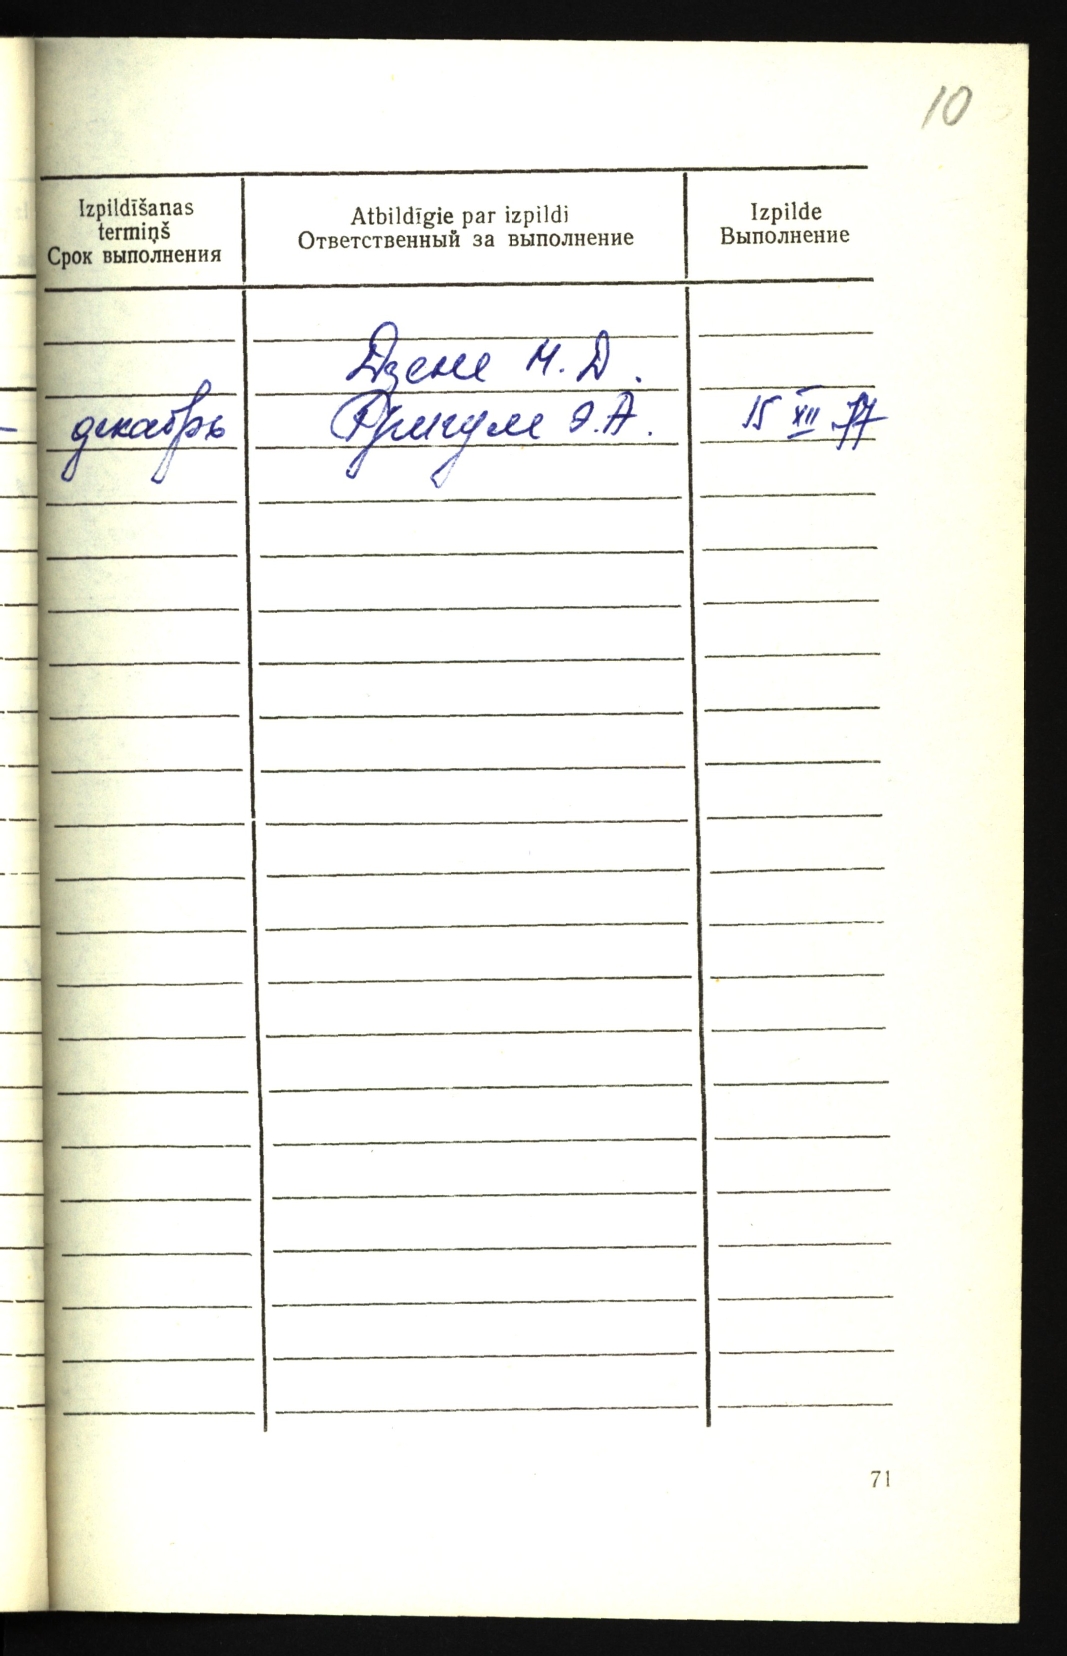 10
Izpildīšanas
termiņš
Срок выполнения
Atbildīgie par izpildi
Ответственный за выполнение
Izpilde
Выполнение
Дзене М. Д.
декабрь
Григуле Э. А.
15 XII 77
71